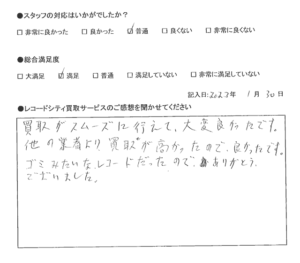 ●スタッフの対応はいかがでしたか?
□ 非常に良かった □ 良かった ☑ 普通 □ 良くない □ 非常に良くない
●総合満足度
□ 大満足 ☑ 満足 □ 普通 □ 満足していない □ 非常に満足していない
記入日: 2023年 1月 30日
●レコードシティ買取サービスのご感想を聞かせてください
買取がスムーズに行えて、大変良かったです。
他の業者より買取が高かったので、良かったです。
ゴミみたいなレコードだったので、ありがとう
ございました。